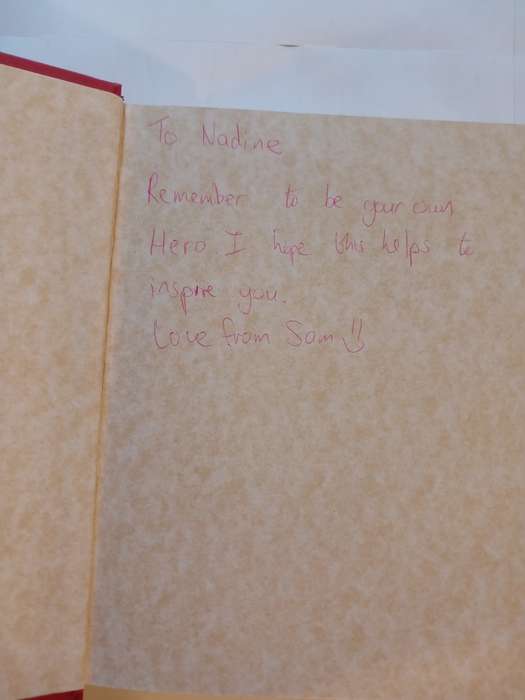 To Nadine
Remember to be your own
Hero I hope this helps to
inspire you.
Love from Sam :)